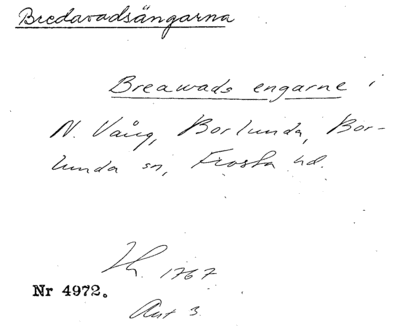 Bredavadsängarna
Breawads engarne i
N. Vång, Borlunda, Bor-
lunda sn, Frosta hd.
1767
Nr 4972.
Akt 3